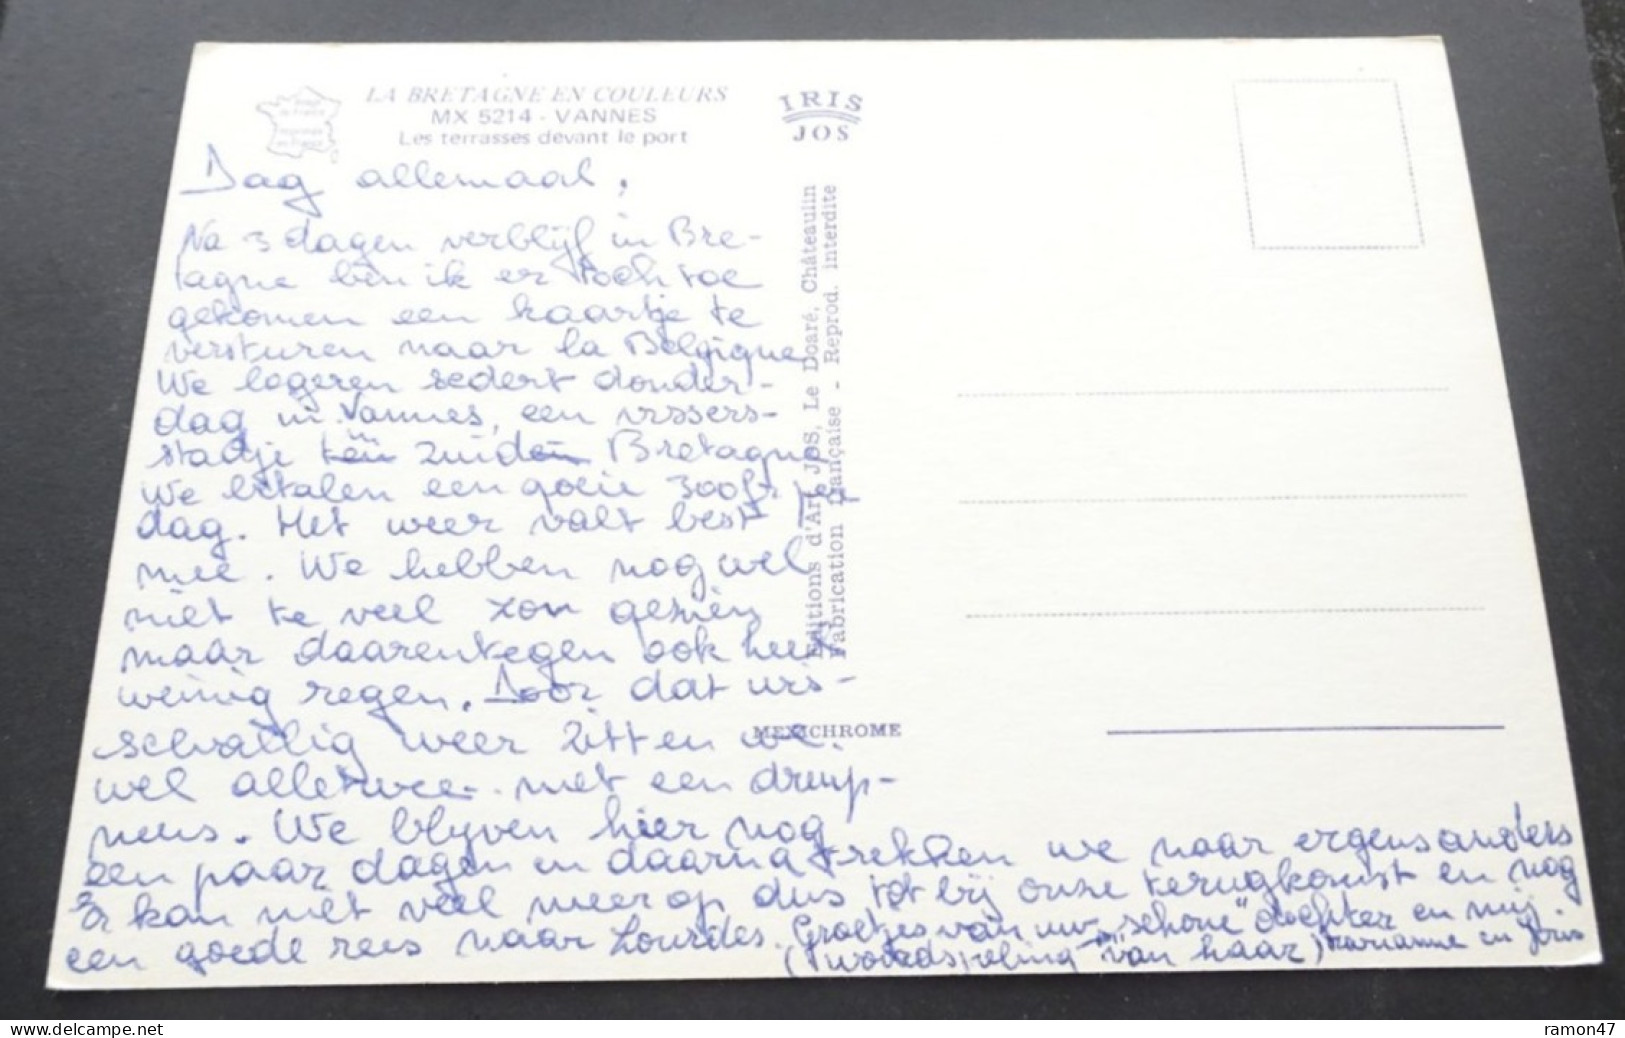 LA BRETAGNE EN COULEURS
MX 5214 - VANNES
Les terrasses devant le port
IRIS
JOS
Image de France
imprimée en France
Editions d'Art JOS, Le Doaré, Châteaulin
Fabrication française - Reprod. interdite
MEXICHROME
Dag allemaal,
Na 3 dagen verblijf in Bre-
tagne ben ik er toch toe
gekomen een kaartje te
versturen naar la Belgique
We logeren sedert donder-
dag in Vannes, een vissers-
stadje in zuid Bretagne
We betalen een goeie 300fr per
dag. Het weer valt best
mee. We hebben nog wel
niet te veel zon gezien
maar daarentegen ook heel
weinig regen. Door dat wis-
selvallig weer zitten we
wel alletwee met een druip-
neus. We blijven hier nog
een paar dagen en daarna trekken we naar ergens anders
Er kan niet veel meer op dus tot bij onze terugkomst en nog
een goede reis naar Lourdes. Groetjes van uw "schone" dochter en mij.
(woordspeling van haar) Marianne en Joris
delcampe.net
ramon47